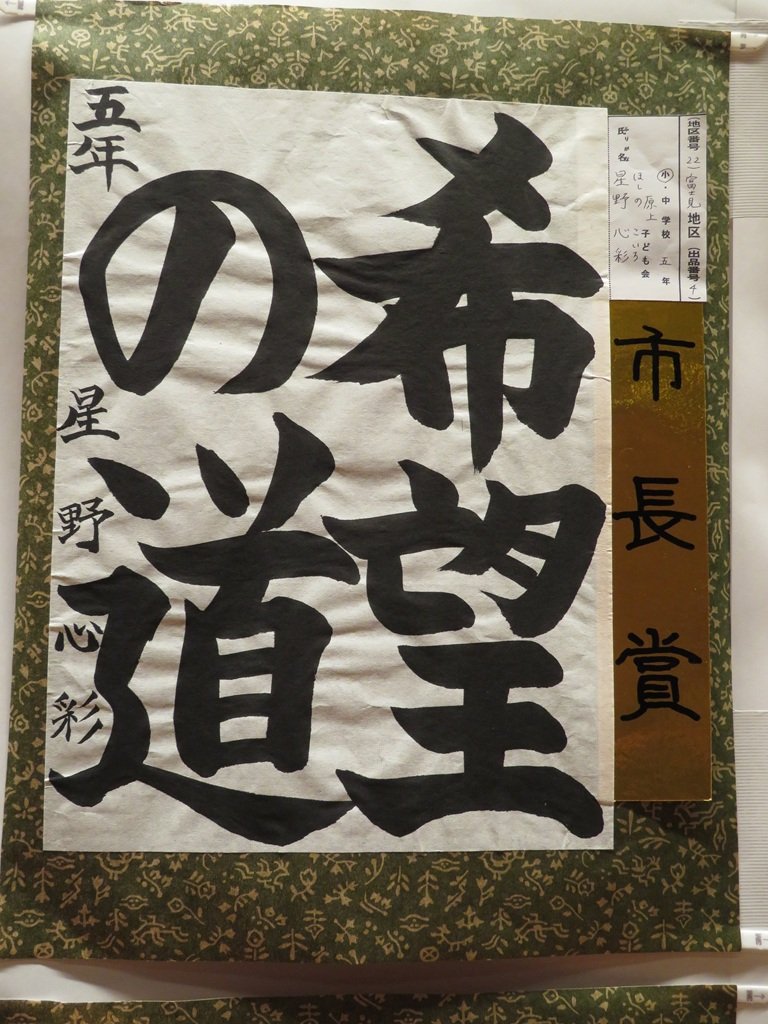 (地区番号 22) 富士見 地区 (出品番号 4)
小・中学校 五年
原上 子ども会
ふりがな ほしの こいろ
氏名 星野 心彩
市長賞
希望
の道
五年 星野心彩